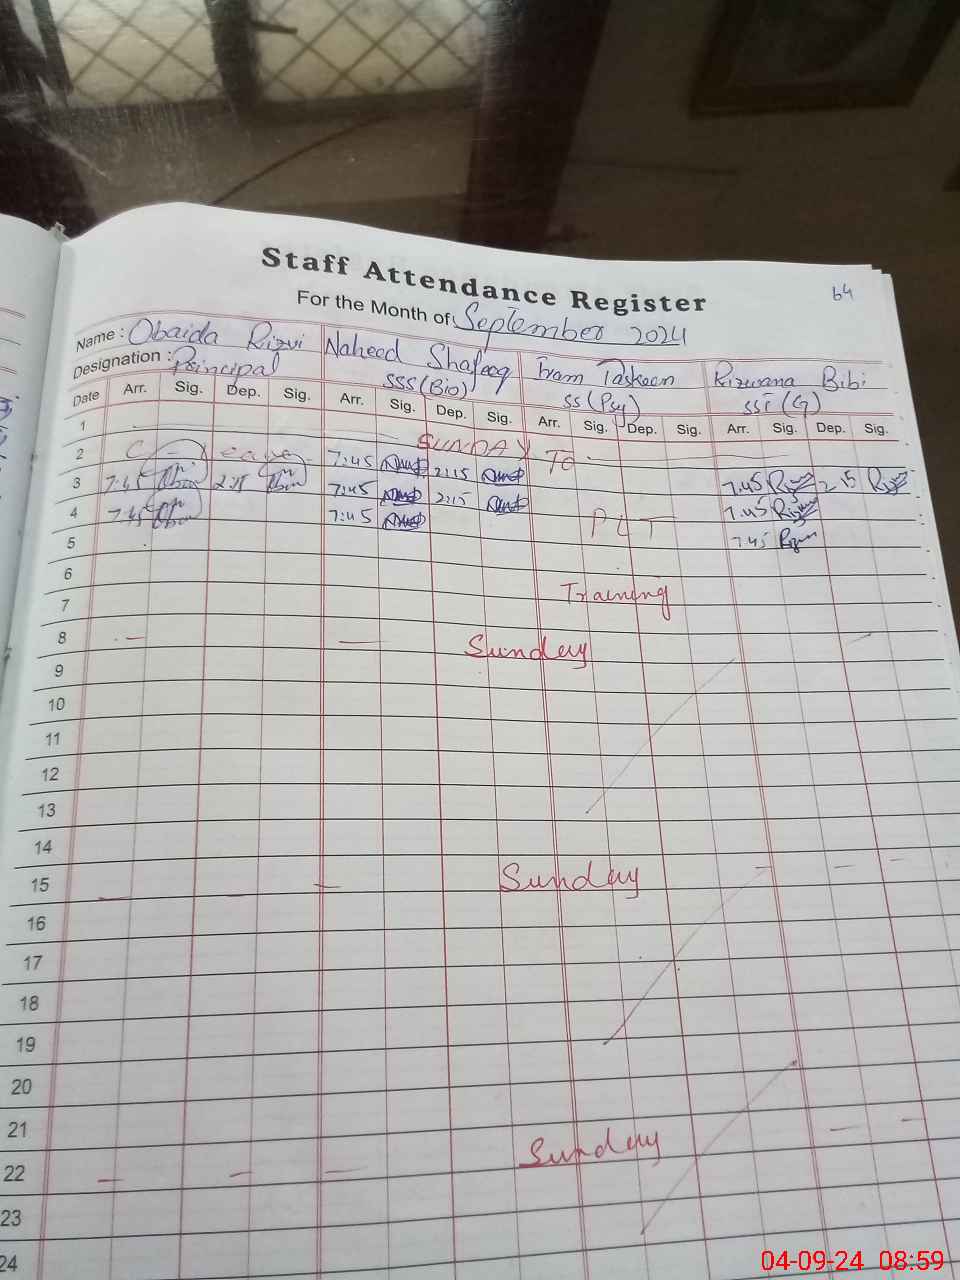 Staff Attendance Register
64
For the Month of September 2024
Name: Obaida Rizvi Naheed Shafeeq Iram Taskeen Rizwana Bibi
Designation: Principal SSS(Bio) SS(Psy) SST(G)
Date Arr. Sig. Dep. Sig. Arr. Sig. Dep. Sig. Arr. Sig. Dep. Sig. Arr. Sig. Dep. Sig.
1 SUNDAY
2 C-Leave 7:45 2:15 To 7:45 2:15
3 7:45 2:15 7:45 2:15 7:45
4 7:45 7:45 PLT 7:45
5
6
7 Training
8 Sunday
9
10
11
12
13
14
15 Sunday
16
17
18
19
20
21
22 Sunday
23
24
04-09-24 08:59